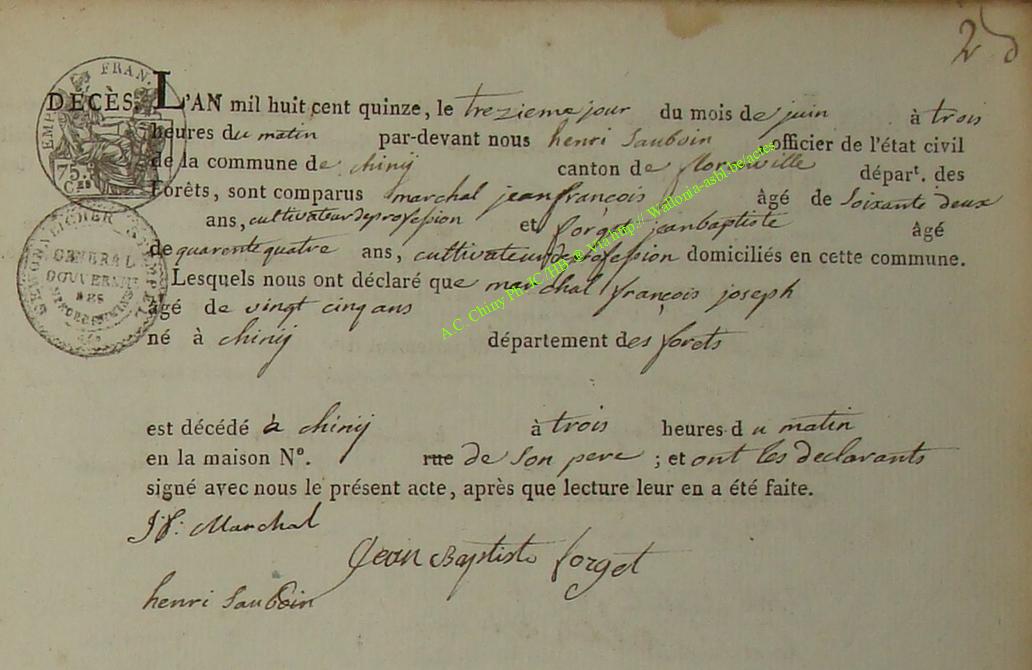 25
FRAN.
EMP
75.
Ces
DÉCÈS. L'AN mil huit cent quinze, le trezieme jour du mois de juin à trois
heures du matin par-devant nous henri Sauboin officier de l'état civil
de la commune de chinij canton de florenville départ. des
Forêts, sont comparus marchal jean françois âgé de Soixante deux
ans, cultivateur de profession et forget jean baptiste âgé
de quarente quatre ans, cultivateur de profession domiciliés en cette commune.
GENERAL
GOUVERN
DES
Lesquels nous ont déclaré que marchal françois joseph
âgé de vingt cinq ans
né à chinij département des forets
est décédé à chinij à trois heures du matin
en la maison No. rue de Son pere ; et ont les declarants
signé avec nous le présent acte, après que lecture leur en a été faite.
J: f: Marchal
Jean Baptiste forget
henri Sauboin
A.C. Chiny Ph. JC HB @ Via http:// Wallonia-asbl.be/actes